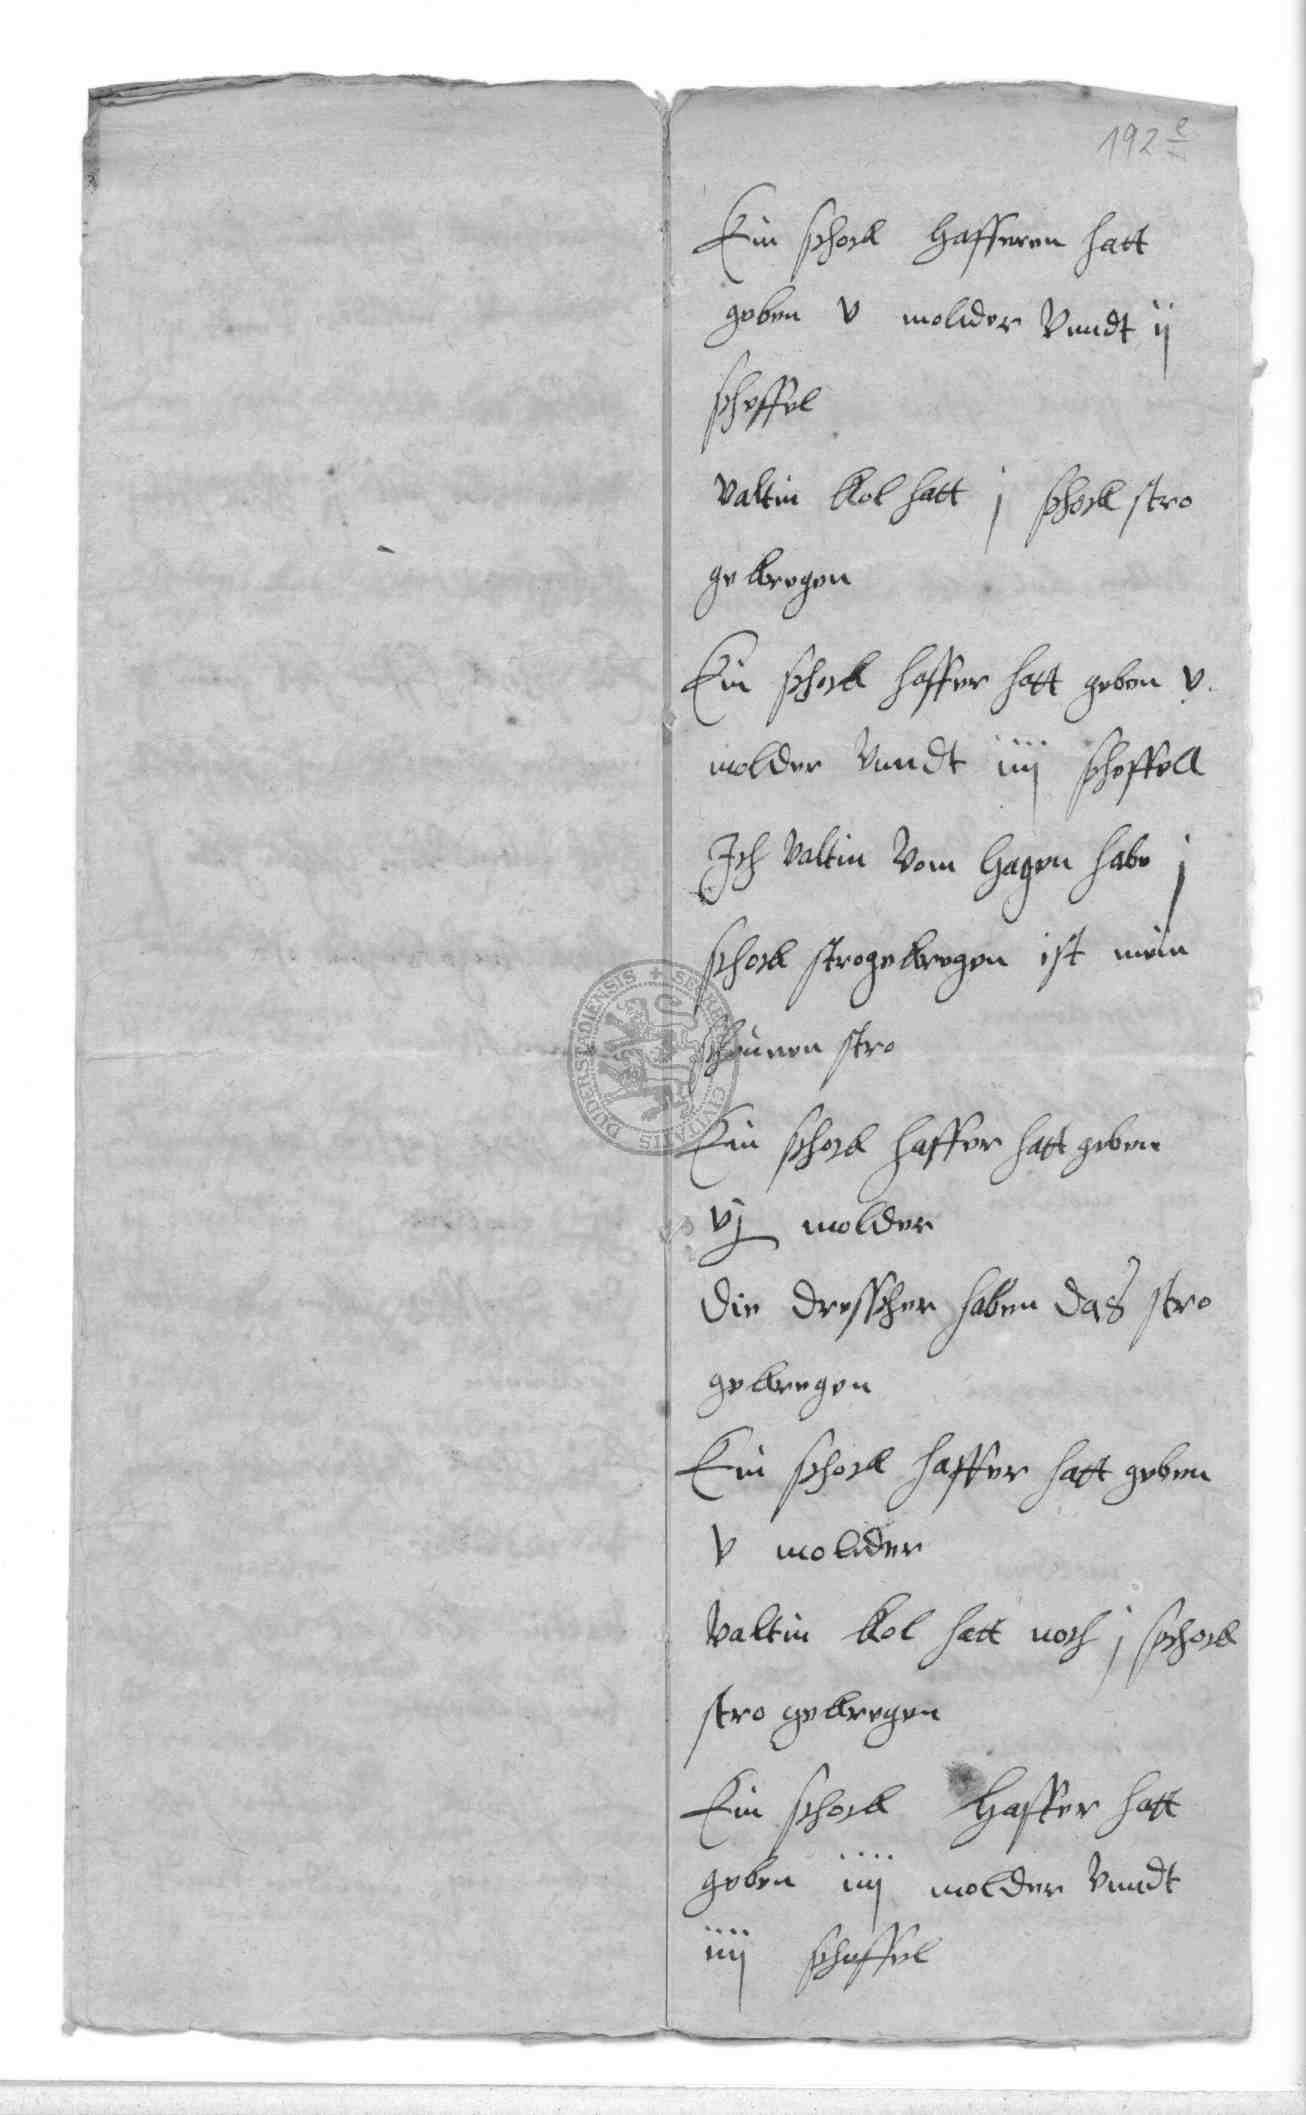 192 e
Ein schock hafferen hatt
geben v molder Vnndt ij
scheffel
Valtin Kol hatt j schock stro
gekregen
Ein schock haffer hatt geben v.
molder Vnndt iiij scheffell
Ich Valtin Vom Hagen habe j
schock stro gekregen ist mein
schunen stro
Ein schock haffer hatt geben
vj molder
Die dresscher haben das stro
gekregen
Ein schock haffer hatt geben
v molder
Valtin Kol hatt noch j schock
stro gekregen
Ein schock Haffer hatt
geben iiij molder Vnndt
iiij scheffel
SECRETUM CIVITATIS DUDERSTADIENSIS